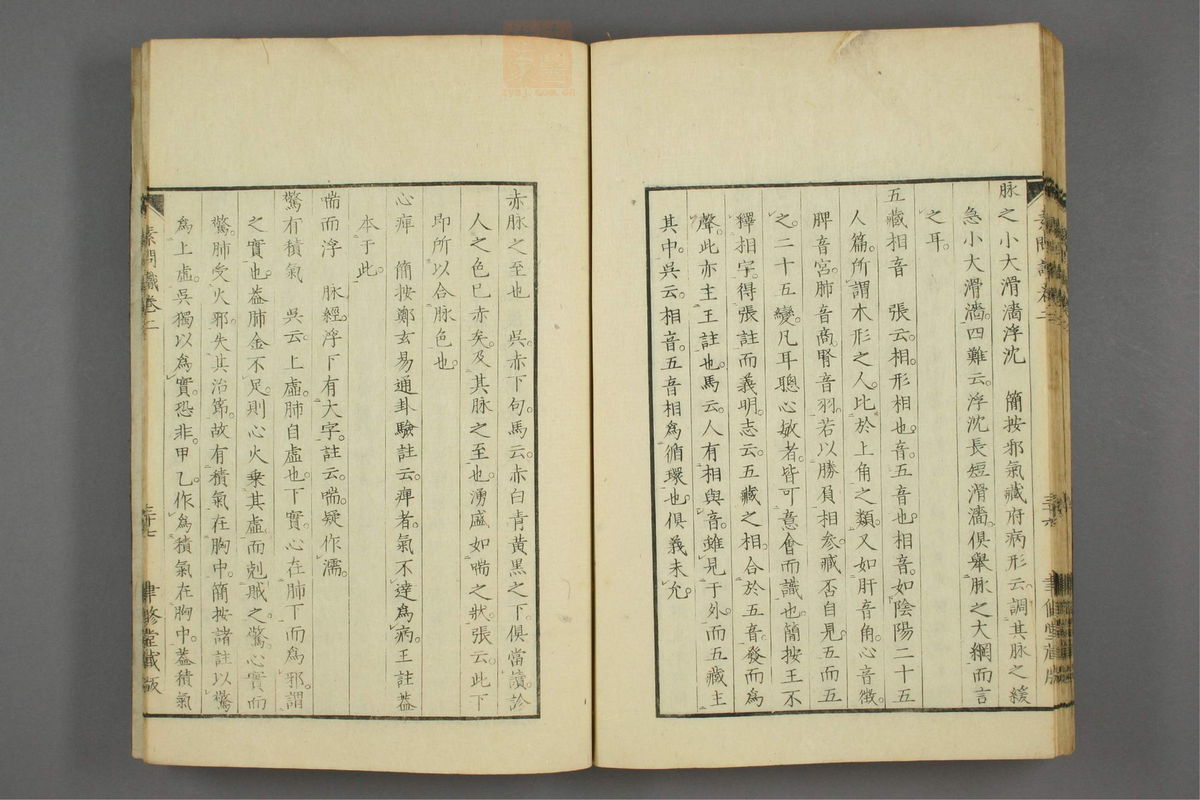 脉之小大滑濇浮沈　簡按邪氣藏府病形云調其脉之緩
急小大滑濇。四難云。浮沈長短滑濇。俱舉脉之大綱而言
之耳。
五藏相音　張云。相。形相也。音。五音也。相音。如陰陽二十五
人篇。所謂木形之人。比於上角之類。又如肝音角。心音徵。
脾音宮。肺音商。腎音羽。若以勝負相參。臧否自見。五而五
之。二十五變。凡耳聰心敏者。皆可意會而識也。簡按王不
釋相字。得張註而義明。志云。五藏之相。合於五音。發而為
聲。此亦主王註也。馬云。人有相與音。雖見于外。而五藏主
其中。吳云。相音。五音相為循環也。俱義未允。
赤脉之至也　吳。赤下句。馬云。赤白青黃黑之下。俱當讀。診
人之色已赤矣。及其脉之至也。湧盛如喘之狀。張云。此下
即所以合脉色也。
心痺　簡按鄭玄易通卦驗註云。痺者。氣不達為病。王註蓋
本于此。
喘而浮　脉經浮下有大字。註云。喘。疑作濡。
驚有積氣　吳云。上虛。肺自虛也。下實。心在肺下而為邪。謂
之實也。蓋肺金不足。則心火乘其虛。而剋賊之。驚。心實而
驚。肺受火邪。失其治節。故有積氣在胸中。簡按諸註以驚
為上虛。吳獨以為實。恐非。甲乙作為積氣在胸中。蓋積氣
素問識卷二
三十七
聿修堂藏版